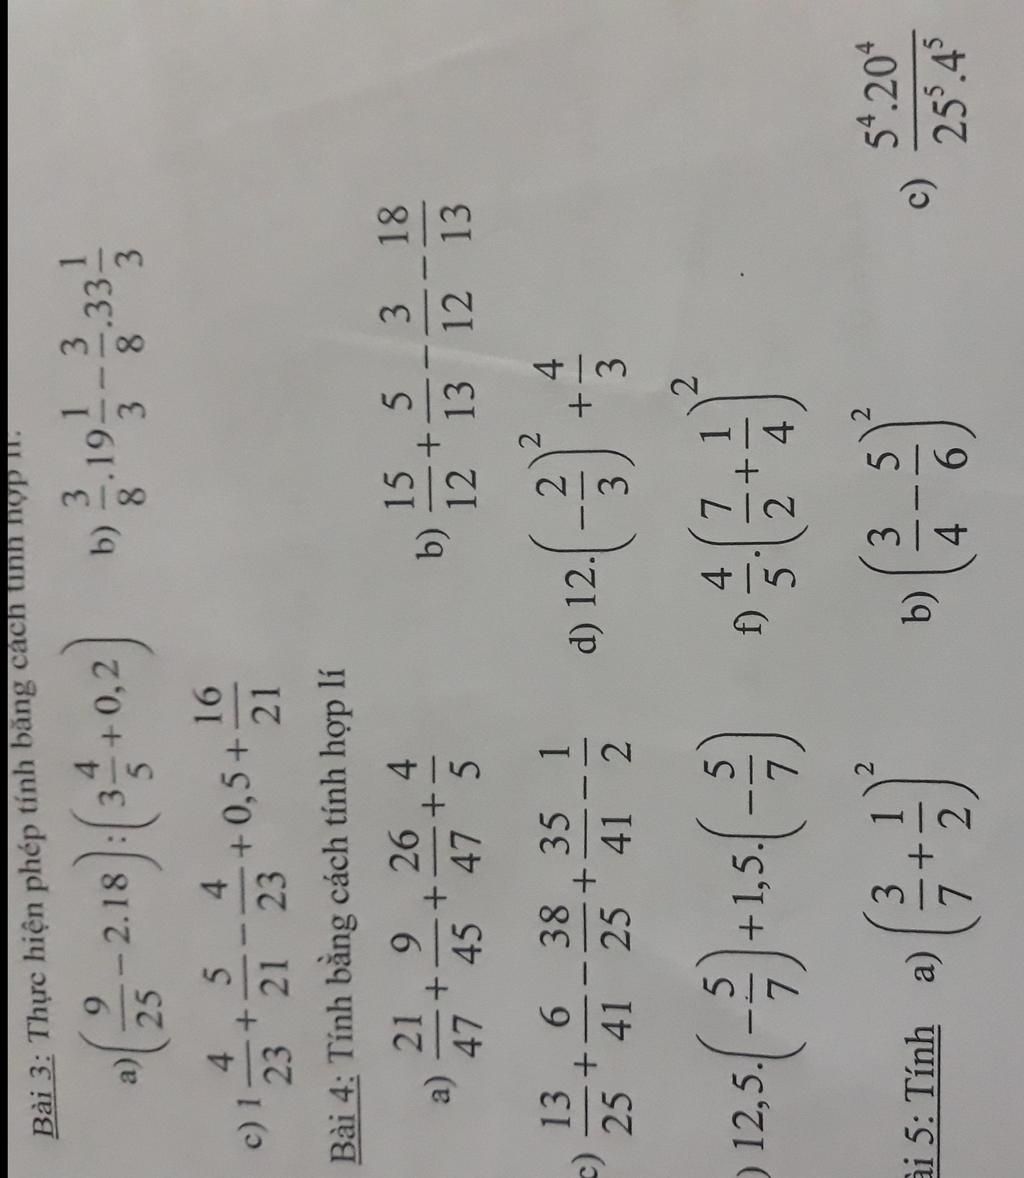 Bài 3: Thực hiện phép tính bằng cách tính hợp lí.
a) (9/25 − 2.18) : (3 4/5 + 0,2) b) 3/8 . 19 1/3 − 3/8 . 33 1/3
c) 1 4/23 + 5/21 − 4/23 + 0,5 + 16/21
Bài 4: Tính bằng cách tính hợp lí
a) 21/47 + 9/45 + 26/47 + 4/5 b) 15/12 + 5/13 − 3/12 − 18/13
c) 13/25 + 6/41 − 38/25 + 35/41 − 1/2 d) 12.(−2/3)² + 4/3
) 12,5.(−5/7) + 1,5.(−5/7) f) 4/5 . (7/2 + 1/4)²
ài 5: Tính a) (3/7 + 1/2)² b) (3/4 − 5/6)² c) 5⁴.20⁴/25⁵.4⁵